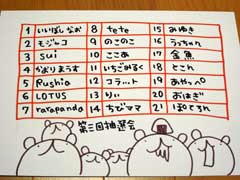 1 いいぼしなお 8 tete 15 みゆき
2 モジャコ 9 のこのこ 16 うっちゃん
3 sui 10 ここあ 17 金魚
4 かよりまろす 11 いちごみるく 18 とこん
5 Rushia 12 コラット 19 あやっぺ
6 LOTUS 13 りぃ 20 おはぎ
7 rarapanda 14 ちびママ 21 ぽてろん
第三回抽選会